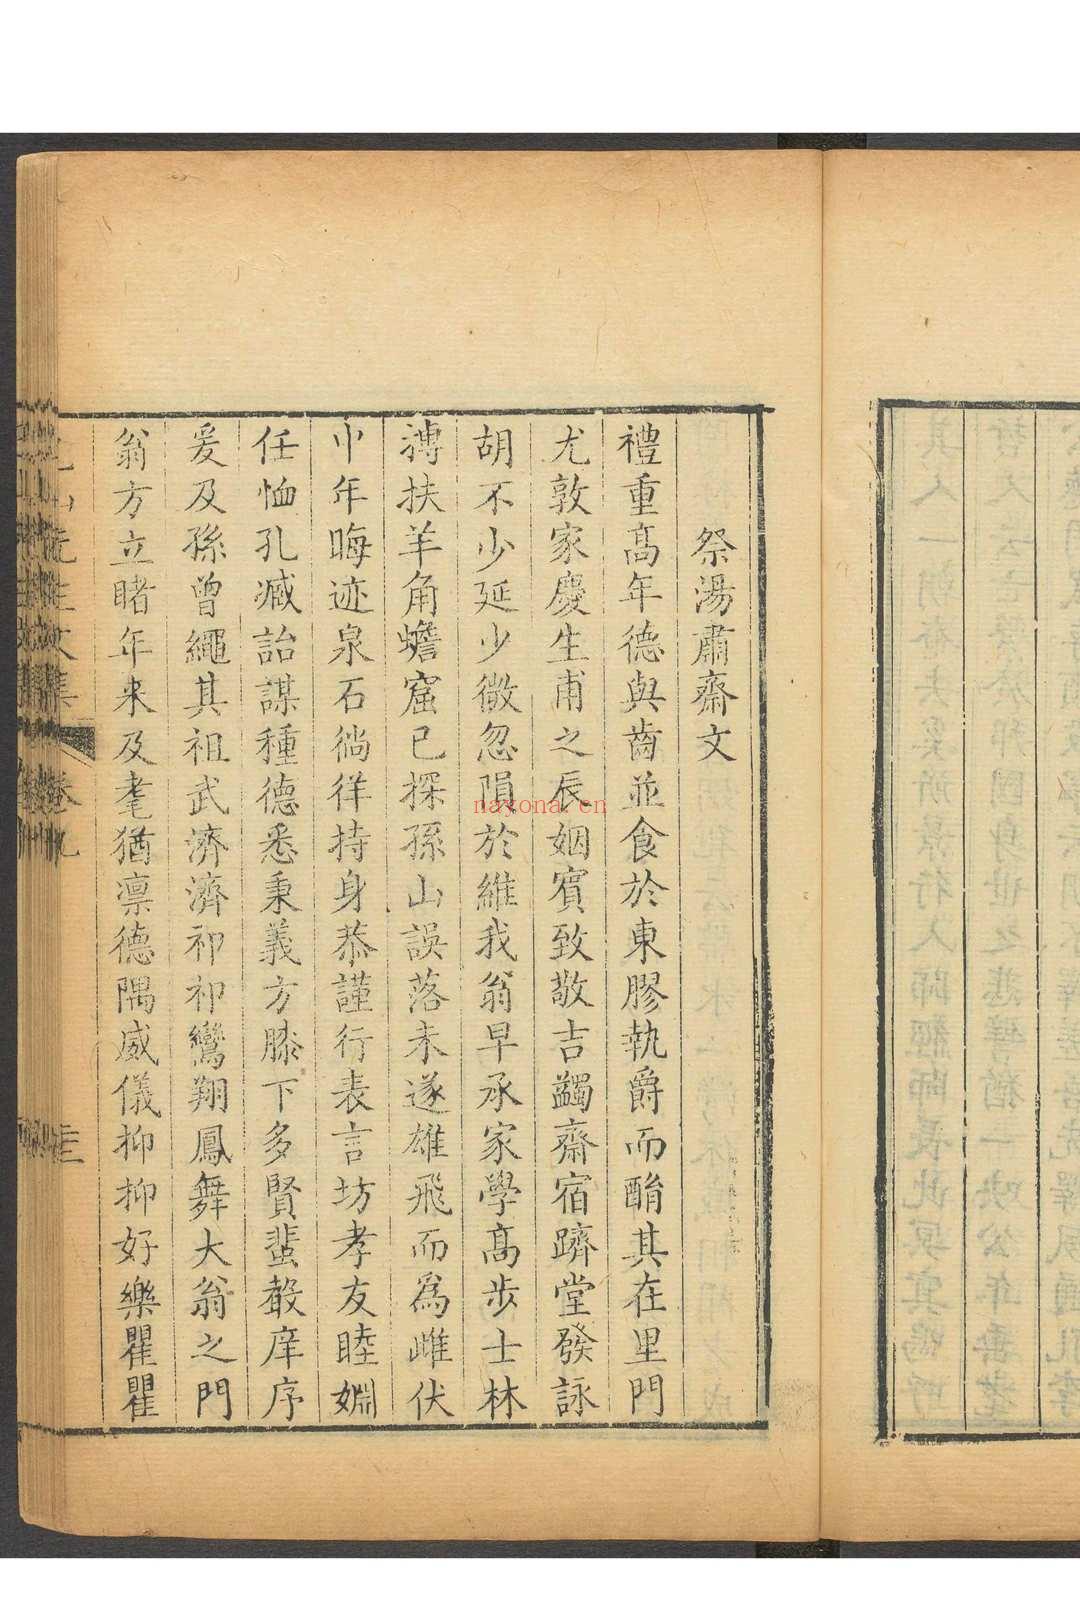 祭湯肅齋文
禮重高年德與齒並食於東膠執爵而酳其在里門
尤敦家慶生甫之辰姻賓致敬吉蠲齋宿躋堂發詠
胡不少延少微忽隕於維我翁早承家學高步士林
摶扶羊角蟾窟已探孫山誤落未遂雄飛而為雌伏
中年晦迹泉石徜徉持身恭謹行表言坊孝友睦婣
任恤孔臧詒謀種德悉秉義方膝下多賢蜚聲庠序
爰及孫曾繩其祖武濟濟祁祁鸞翔鳳舞大翁之門
翁方立睹年未及耄猶凛德隅威儀抑抑好樂瞿瞿
文集
nayona.cn